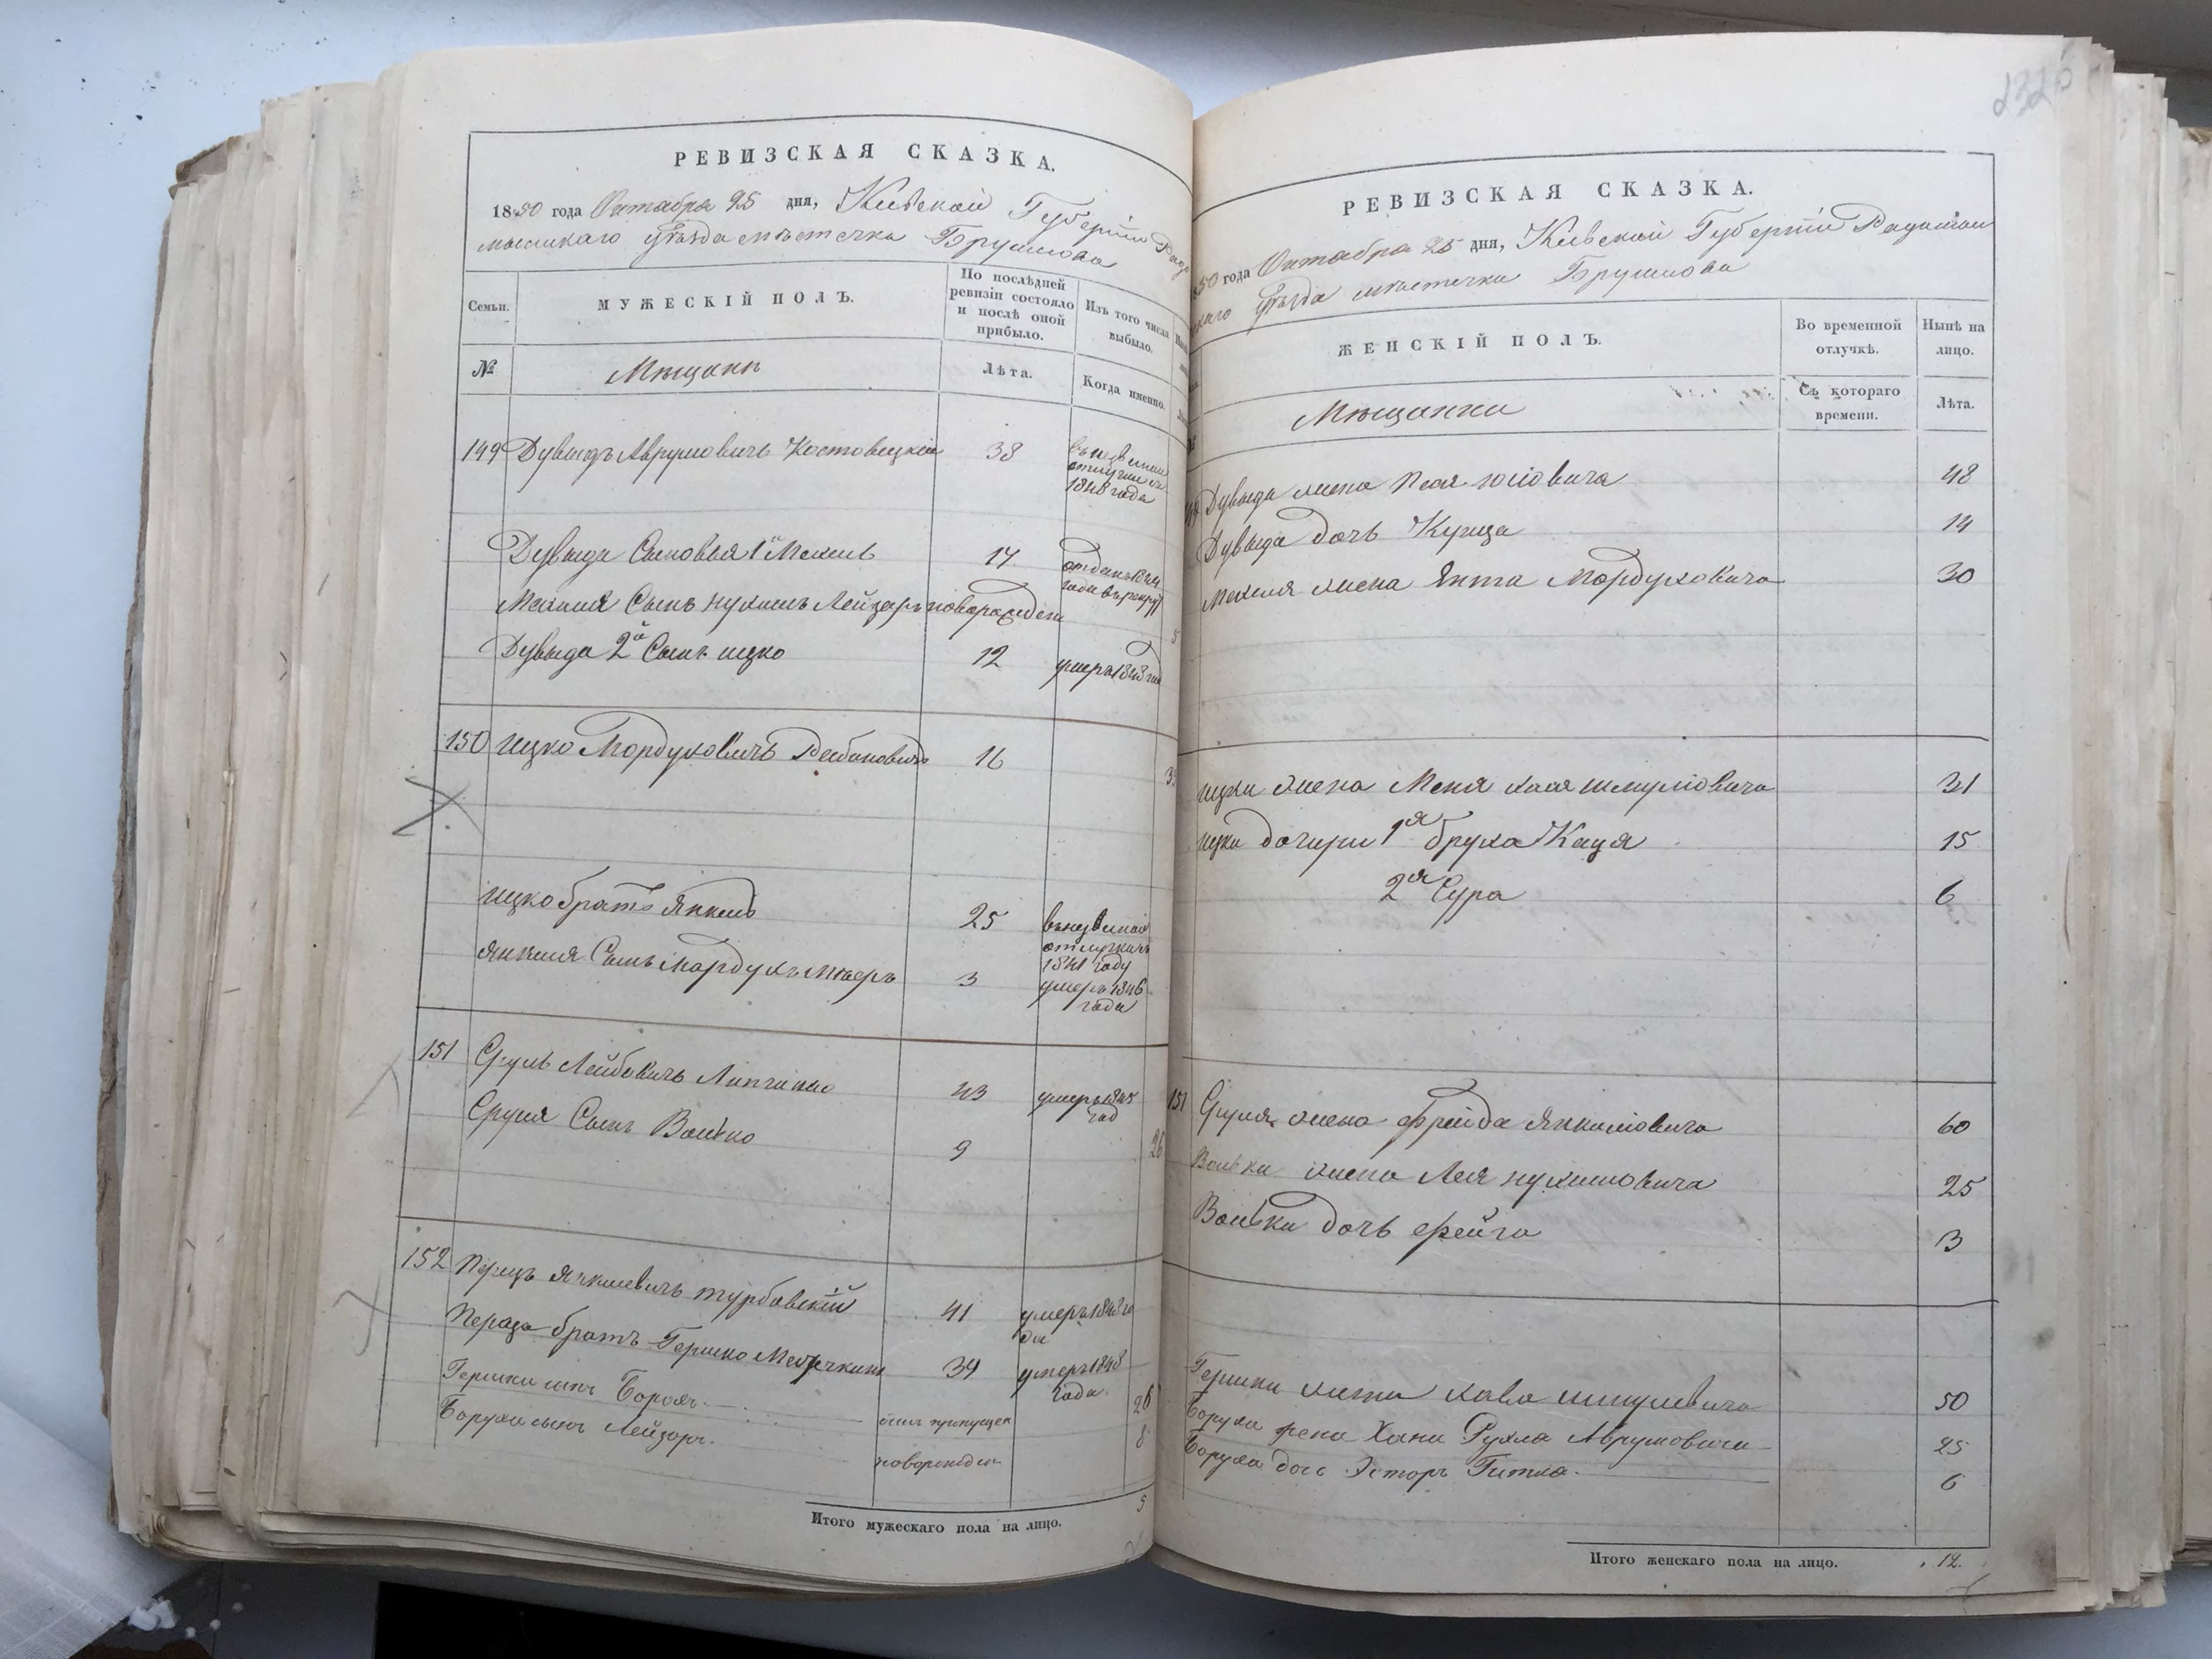 РЕВИЗСКАЯ СКАЗКА.
1850 года Октабра 25 дня, Киевской Губернiи Радо
мысльскаго уѣзда мѣстечка Брусилова
Семьи.
МУЖЕСКIЙ ПОЛЪ.
По послѣдней ревизiи состояло и послѣ оной прибыло.
Изъ того числа выбыло.
№
Мѣщане
Лѣта.
Когда именно.
149 Дувыдъ Аврумовичъ Костовецкiй 38
отлучки съ
1848 года
Дувыда Сыновья 1й Мехель 17 отданъ 1844
года въ рекруты
Мехеля Сынъ Нухимъ Лейзеръ новорожден 5
Дувыда 2й Сынъ ицко 12 умеръ 1848 год
150 ицко Мордуховичъ 16
ицко братъ Янкель 25 въ неизвѣстной
отлучкѣ съ
1841 году
Янкеля Сынъ Мордухъ Мееръ 3 умеръ 1846
года
151 Сруль Лейбовичъ Липченко 43 умеръ 1845
год
Сруля Сынъ Волько 9 26
152 Перецъ Янкелевичъ турбовскiй 41 умеръ 1848 го
да
Переца братъ Гершко 34 умеръ 1848
года
Гершки сынъ Борохъ. былъ пропущен 26
Боруха сынъ Лейзоръ. новорожден 8
Итого мужескаго пола на лицо. 5
РЕВИЗСКАЯ СКАЗКА.
50 года Октабра 25 дня, Киевской Губернiи Радомысль
скаго уѣзда мѣстечка Брусилова
ЖЕНСКIЙ ПОЛЪ.
Во временной отлучкѣ.
Нынѣ на лицо.
Мѣщанки
Съ котораго времени.
Лѣта.
Дувыда жена Песя Юсiовича 48
Дувыда дочь 14
Мехеля жена Янта Мордуховича 30
ицки жена Меня Хая Шмулiовича 31
ицки дочери 1я Бруха Каця 15
2я Сура 6
151 Сруля жена Фрейда Янкелiовича 60
Вольки жена Лея Нухимовича 25
Вольки дочь Фейга 3
Гершки жена Хава Шмулевича 50
Боруха жена Хана Рухля Аврумовича 25
Боруха дочь Эстеръ Гитля 6
Итого женскаго пола на лицо. 12.